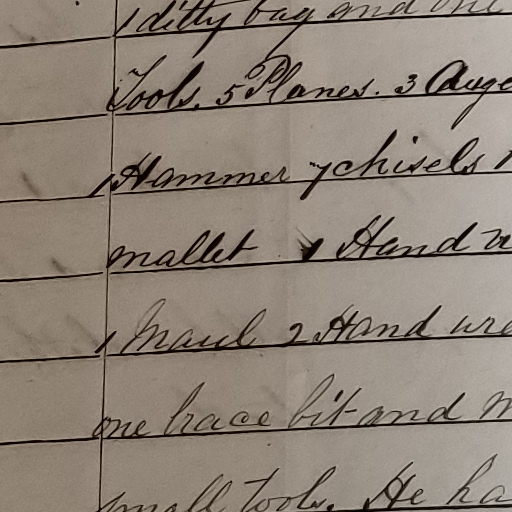 1 ditty bag and one
Tools. 5 Planes. 3 Auge
1 Hammer 7 chisels 1
mallet 1 Hand
1 Maul 2 Hand wre
one brace bit and m
small tools. He ha